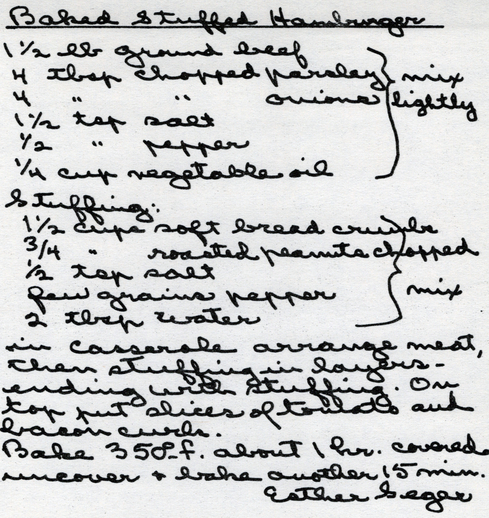 Baked Stuffed Hamburger
1 1/2 lb ground beef
4 tbsp chopped parsley
4 " " onions
mix lightly
1 1/2 tsp salt
1/2 " pepper
1/4 cup vegetable oil
Stuffing:
1 1/2 cups soft bread crumbs
3/4 " roasted peanuts chopped
1/2 tsp salt
few grains pepper
mix
2 tbsp water
in casserole arrange meat,
then stuffing in layers -
ending with stuffing. On
top put slices of tomato and
bacon curls.
Bake 350° f. about 1 hr. covered
uncover + bake another 15 min.
Esther Seger